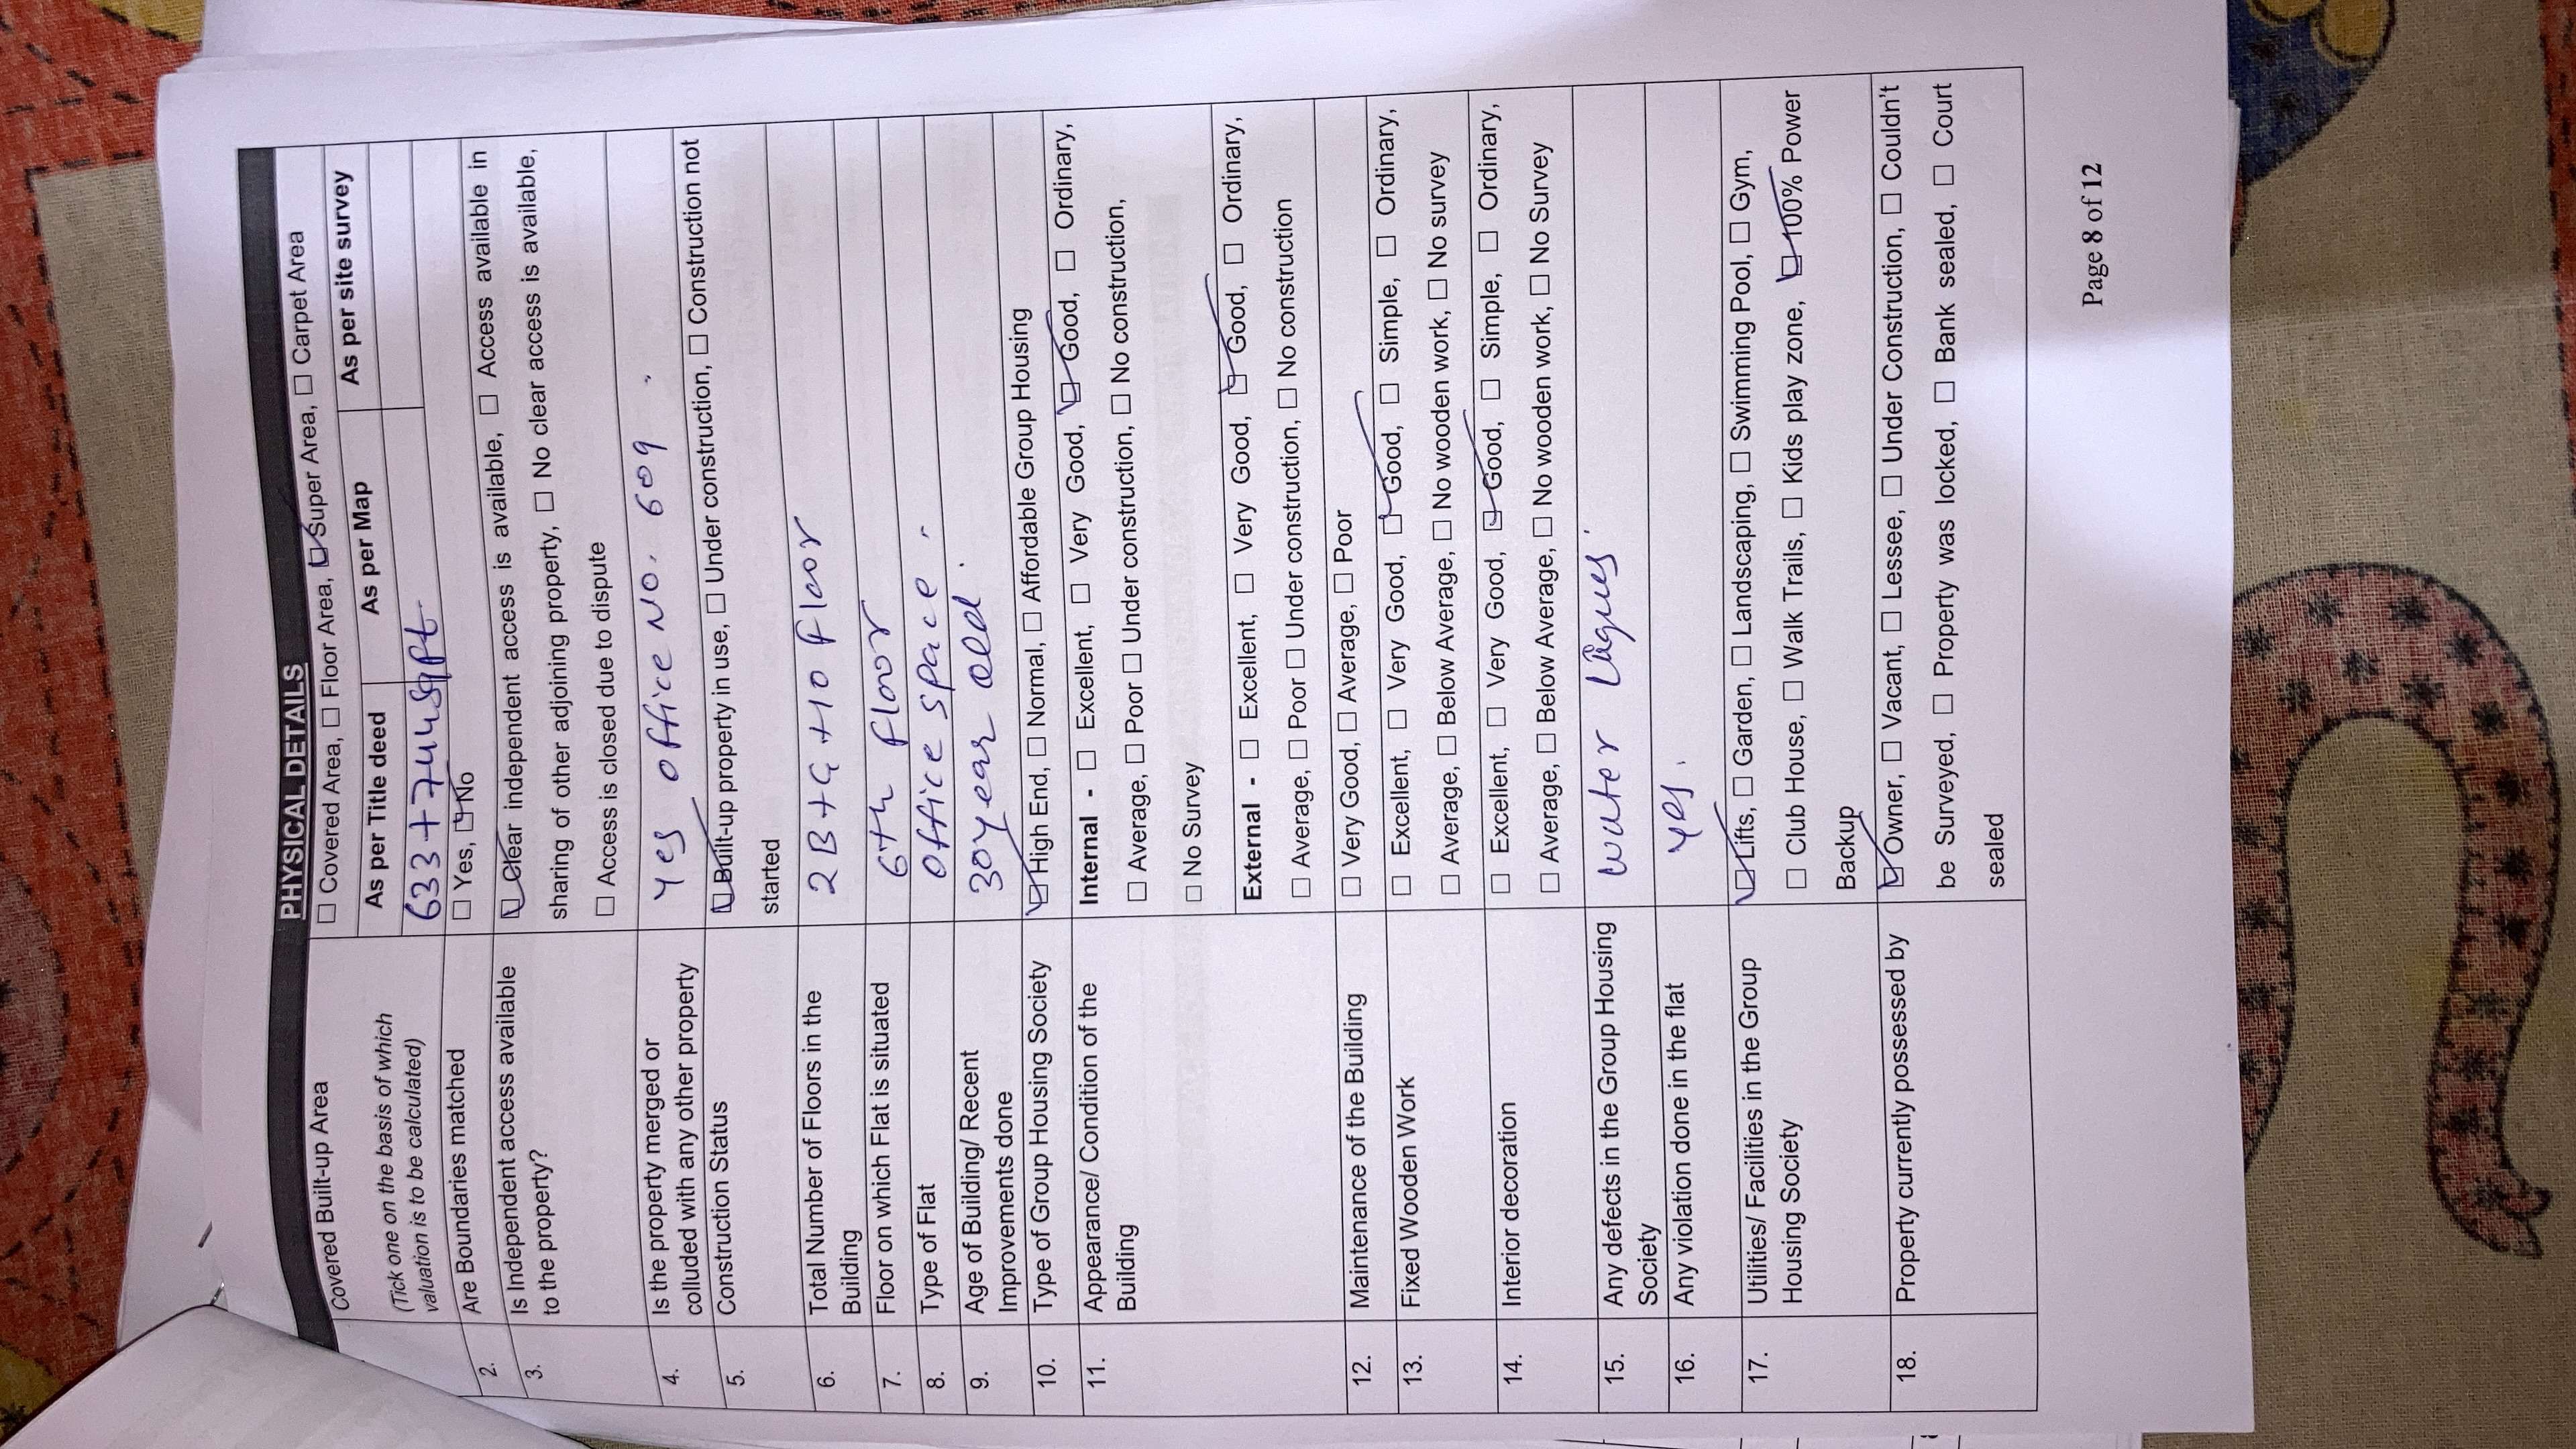 PHYSICAL DETAILS
Covered Built-up Area
(Tick one on the basis of which
valuation is to be calculated)
☐ Covered Area, ☐ Floor Area, ☑ Super Area, ☐ Carpet Area
As per Title deed As per Map As per site survey
633+744 sqft
2. Are Boundaries matched ☐ Yes, ☑ No
3. Is Independent access available
to the property?
☑ Clear independent access is available, ☐ Access available in
sharing of other adjoining property, ☐ No clear access is available,
☐ Access is closed due to dispute
4. Is the property merged or
colluded with any other property
Yes office No. 609.
5. Construction Status
☑ Built-up property in use, ☐ Under construction, ☐ Construction not
started
6. Total Number of Floors in the
Building
2B+G+10 floor
7. Floor on which Flat is situated 6th floor
8. Type of Flat office space.
9. Age of Building/ Recent
Improvements done
30year old.
10. Type of Group Housing Society ☑ High End, ☐ Normal, ☐ Affordable Group Housing
11. Appearance/ Condition of the
Building
Internal - ☐ Excellent, ☐ Very Good, ☑ Good, ☐ Ordinary,
☐ Average, ☐ Poor ☐ Under construction, ☐ No construction,
☐ No Survey
External - ☐ Excellent, ☐ Very Good, ☑ Good, ☐ Ordinary,
☐ Average, ☐ Poor ☐ Under construction, ☐ No construction
12. Maintenance of the Building ☐ Very Good, ☐ Average, ☐ Poor
13. Fixed Wooden Work ☐ Excellent, ☐ Very Good, ☑ Good, ☐ Simple, ☐ Ordinary,
☐ Average, ☐ Below Average, ☐ No wooden work, ☐ No survey
14. Interior decoration ☐ Excellent, ☐ Very Good, ☑ Good, ☐ Simple, ☐ Ordinary,
☐ Average, ☐ Below Average, ☐ No wooden work, ☐ No Survey
15. Any defects in the Group Housing
Society
water
16. Any violation done in the flat Yes.
17. Utilities/ Facilities in the Group
Housing Society
☑ Lifts, ☐ Garden, ☐ Landscaping, ☐ Swimming Pool, ☐ Gym,
☐ Club House, ☐ Walk Trails, ☐ Kids play zone, ☑ 100% Power
Backup
18. Property currently possessed by ☑ Owner, ☐ Vacant, ☐ Lessee, ☐ Under Construction, ☐ Couldn't
be Surveyed, ☐ Property was locked, ☐ Bank sealed, ☐ Court
sealed
Page 8 of 12